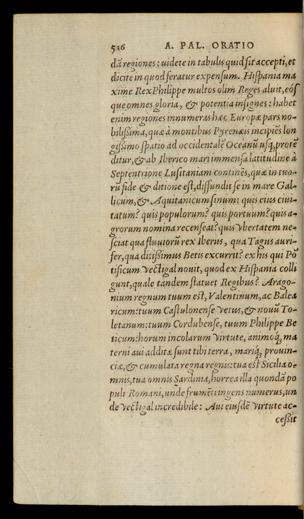 526 A. PAL. ORATIO
dā regiones: uidete in tabulis quid sit accepti, et
dicite in quod feratur expensum. Hispania ma
xime Rex Philippe multos olim Reges aluit, eós
que omnes gloria, & potentia insignes: habet
enim regiones innumeras hæc Europæ pars no-
bilissima, quæ à montibus Pyrenæis incipiēs lon
gissimo spatio ad occidentalē Oceanū usq; protē
ditur, & ab Iberico mari immensa latitudine à
Septentrione Lusitaniam continēs, quæ in tuo-
rū fide & ditione est, diffundit se in mare Gal-
licum, & Aquitanicum sinum: quis eius ciui-
tatum? quis populorum? quis portuum? quis a-
grorum nomina recenseat? quis vbertatem ne-
sciat qua fluuiorū rex Iberus, qua Tagus auri-
fer, qua ditissimus Betis excurrit? ex his qui Pō
tificum vectigal nouit, quod ex Hispania colli
gunt, quale tandem statuet Regibus? Arago-
nium regnum tuum est, Valentinum, ac Balea
ricum: tuum Castulonense vetus, & nouū To-
letanum: tuum Cordubense, tuum Philippe Be
ticum: horum incolarum virtute, animoq; ma
terni aui additæ sunt tibi terra, mariq; prouin-
ciæ, & cumulata regna regnis: tua est Sicilia o-
mnis, tua omnis Sardinia, horrea illa quondā po
puli Romani, unde frumēti ingens numerus, un
de vectigal incredibile: Aui eiusdē virtute ac-
cessit